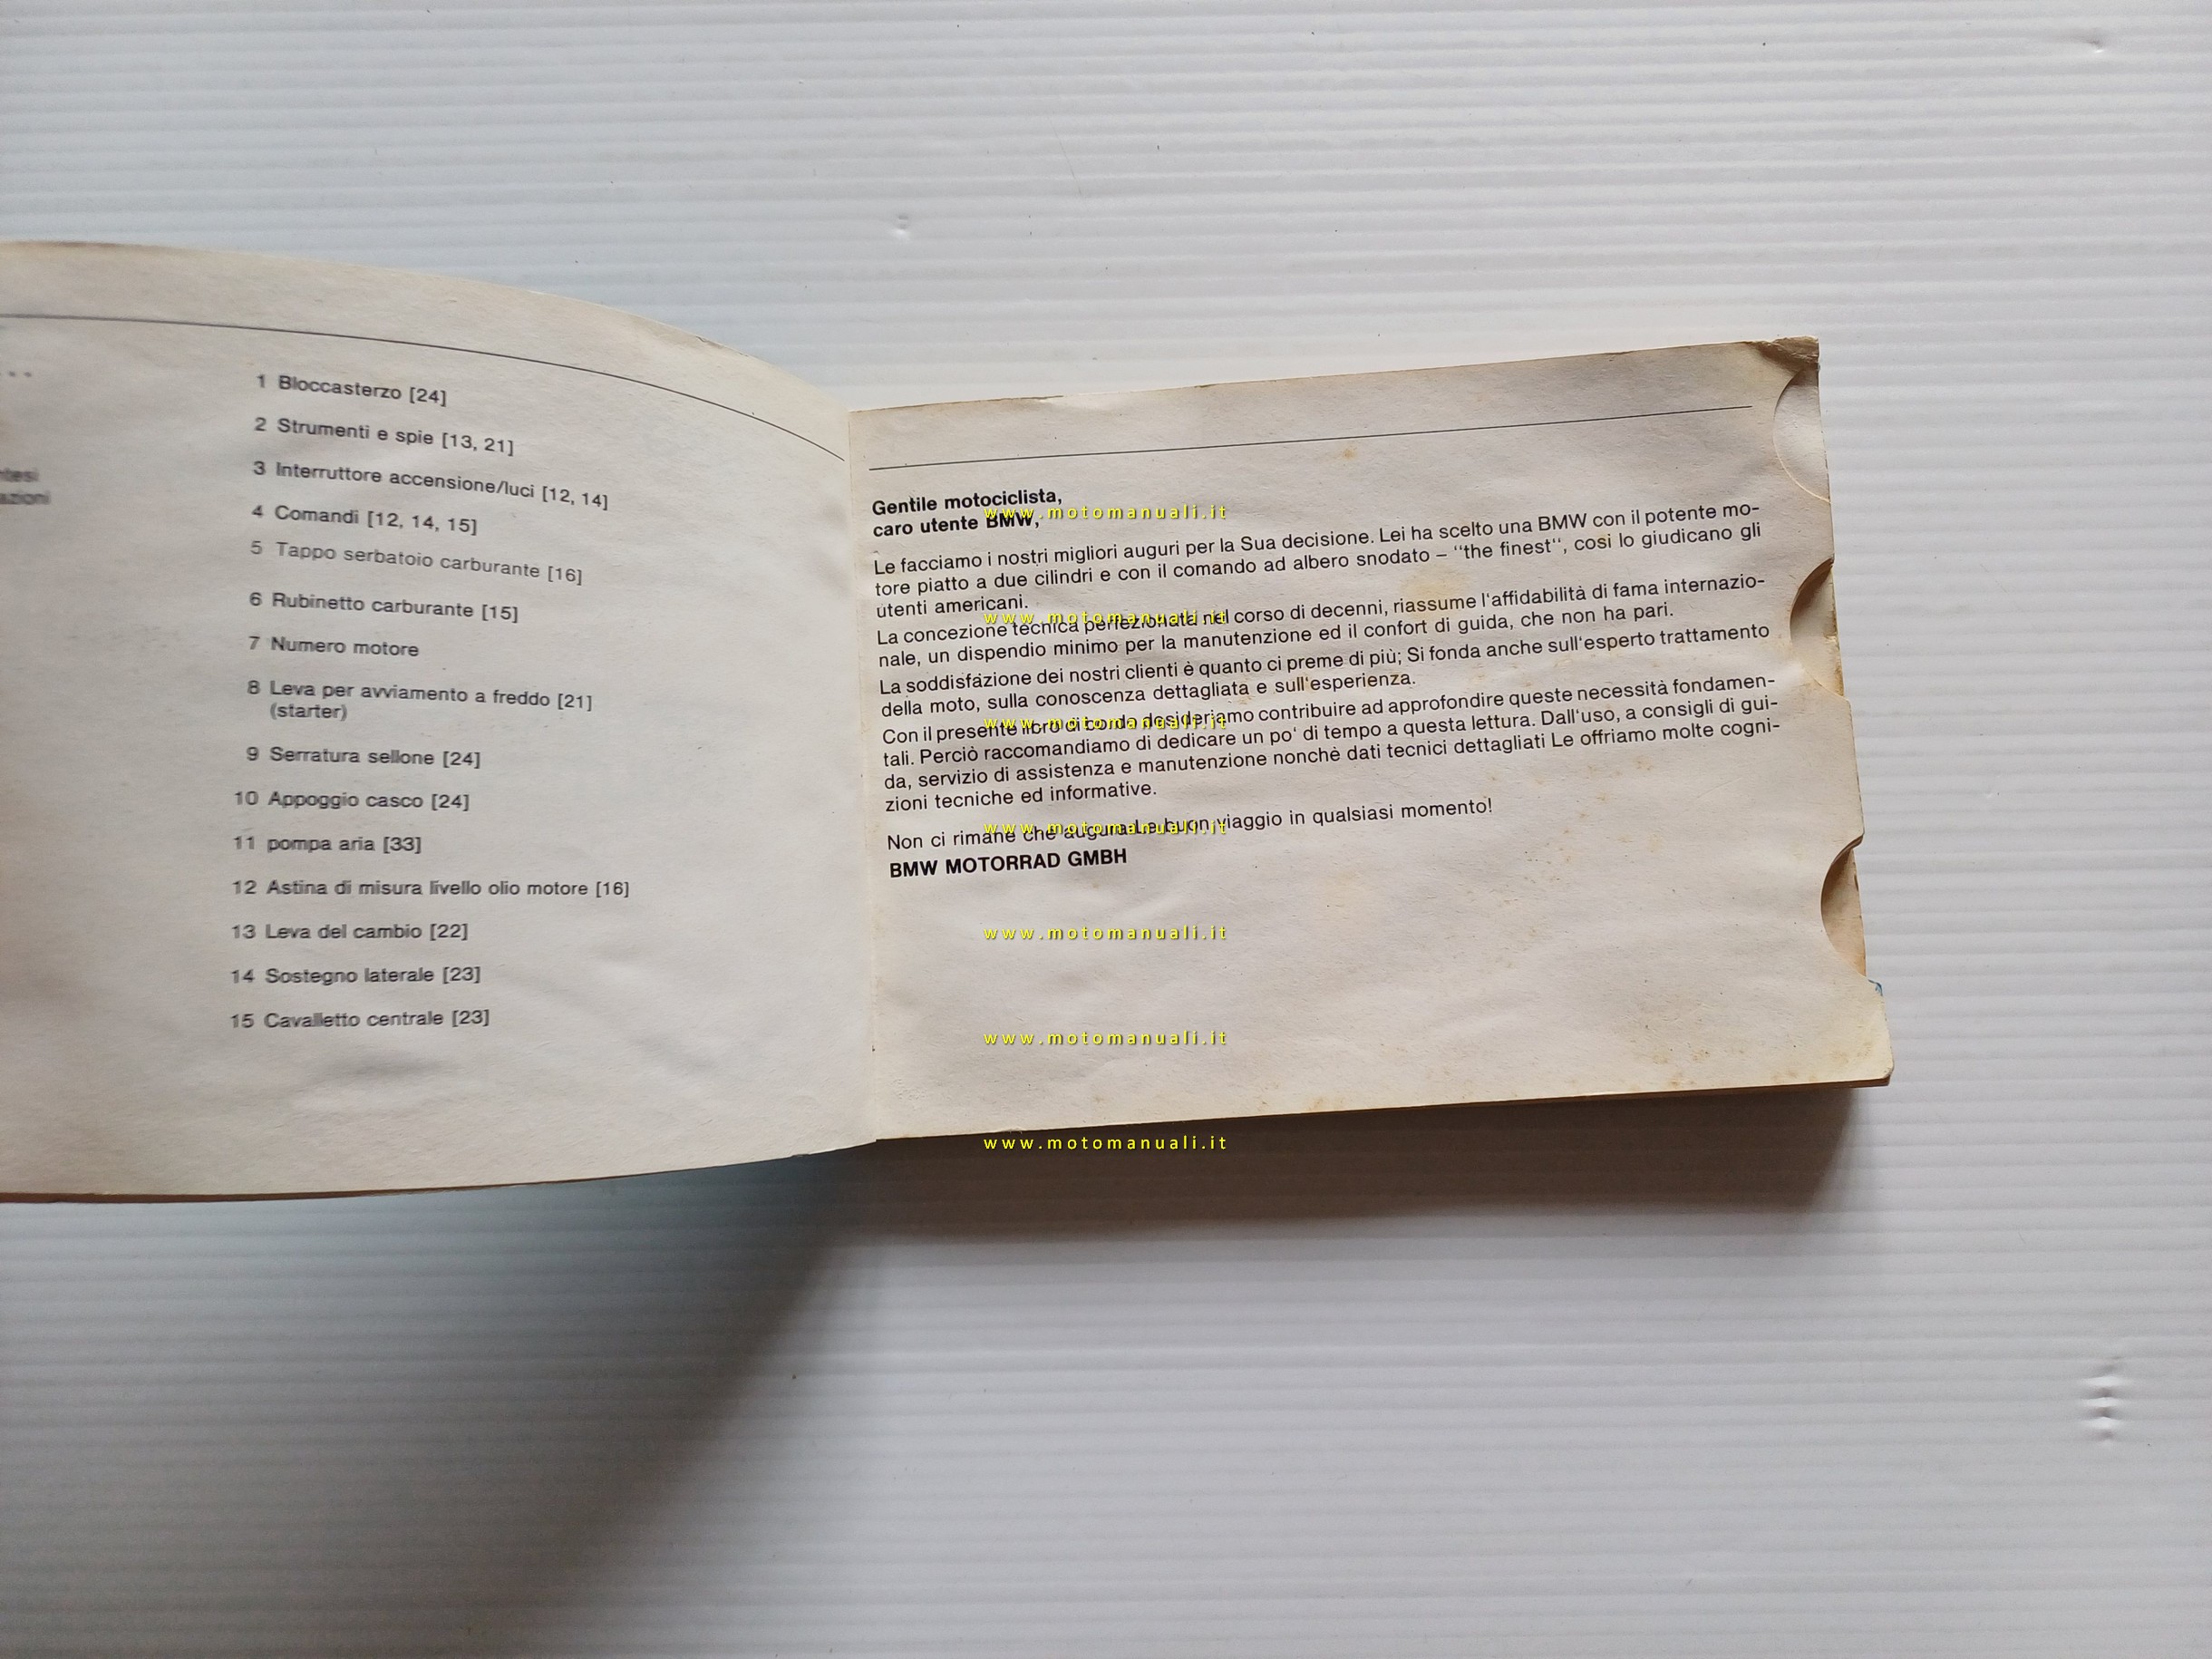 ntesi
azioni
1 Bloccasterzo [24]
2 Strumenti e spie [13, 21]
3 Interruttore accensione/luci [12, 14]
4 Comandi [12, 14, 15]
5 Tappo serbatoio carburante [16]
6 Rubinetto carburante [15]
7 Numero motore
8 Leva per avviamento a freddo [21]
(starter)
9 Serratura sellone [24]
10 Appoggio casco [24]
11 pompa aria [33]
12 Astina di misura livello olio motore [16]
13 Leva del cambio [22]
14 Sostegno laterale [23]
15 Cavalletto centrale [23]
Gentile motociclista,
caro utente BMW,
Le facciamo i nostri migliori auguri per la Sua decisione. Lei ha scelto una BMW con il potente mo-
tore piatto a due cilindri e con il comando ad albero snodato – "the finest", cosi lo giudicano gli
utenti americani.
La concezione tecnica perfezionata nel corso di decenni, riassume l'affidabilità di fama internazio-
nale, un dispendio minimo per la manutenzione ed il confort di guida, che non ha pari.
La soddisfazione dei nostri clienti è quanto ci preme di più; Si fonda anche sull'esperto trattamento
della moto, sulla conoscenza dettagliata e sull'esperienza.
Con il presente libro di bordo desideriamo contribuire ad approfondire queste necessità fondamen-
tali. Perciò raccomandiamo di dedicare un po' di tempo a questa lettura. Dall'uso, a consigli di gui-
da, servizio di assistenza e manutenzione nonchè dati tecnici dettagliati Le offriamo molte cogni-
zioni tecniche ed informative.
Non ci rimane che augurarLe buon viaggio in qualsiasi momento!
BMW MOTORRAD GMBH
www.motomanuali.it
www.motomanuali.it
www.motomanuali.it
www.motomanuali.it
www.motomanuali.it
www.motomanuali.it
www.motomanuali.it